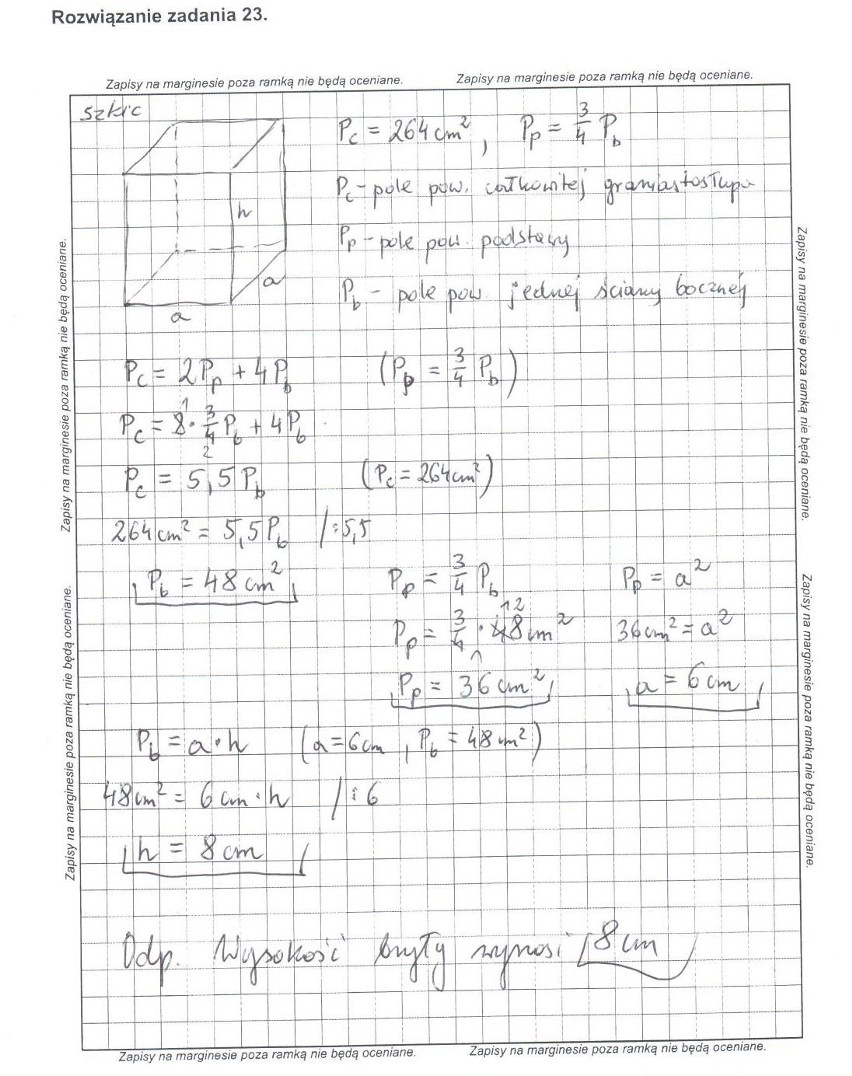 Rozwiązanie zadania 23.
Zapisy na marginesie poza ramką nie będą oceniane. Zapisy na marginesie poza ramką nie będą oceniane.
szkic
h
a
a
P_c = 264 cm², P_p = 3/4 P_b
P_c - pole pow. całkowitej graniastosłupa
P_p - pole pow. podstawy
P_b - pole pow. jednej ściany bocznej
P_c = 2P_p + 4P_b (P_p = 3/4 P_b)
P_c = 2 1 · 3/4 2 P_b + 4P_b
P_c = 5,5 P_b (P_c = 264 cm²)
264 cm² = 5,5 P_b /:5,5
P_b = 48 cm² P_p = 3/4 P_b P_p = a²
P_p = 3/4 1 · 48 12 cm² 36 cm² = a²
P_p = 36 cm² a = 6 cm
P_b = a · h (a = 6 cm, P_b = 48 cm²)
48 cm² = 6 cm · h /:6
h = 8 cm
Odp. Wysokość bryły wynosi 8 cm
Zapisy na marginesie poza ramką nie będą oceniane. Zapisy na marginesie poza ramką nie będą oceniane.
Zapisy na marginesie poza ramką nie będą oceniane. Zapisy na marginesie poza ramką nie będą oceniane.
Zapisy na marginesie poza ramką nie będą oceniane. Zapisy na marginesie poza ramką nie będą oceniane.